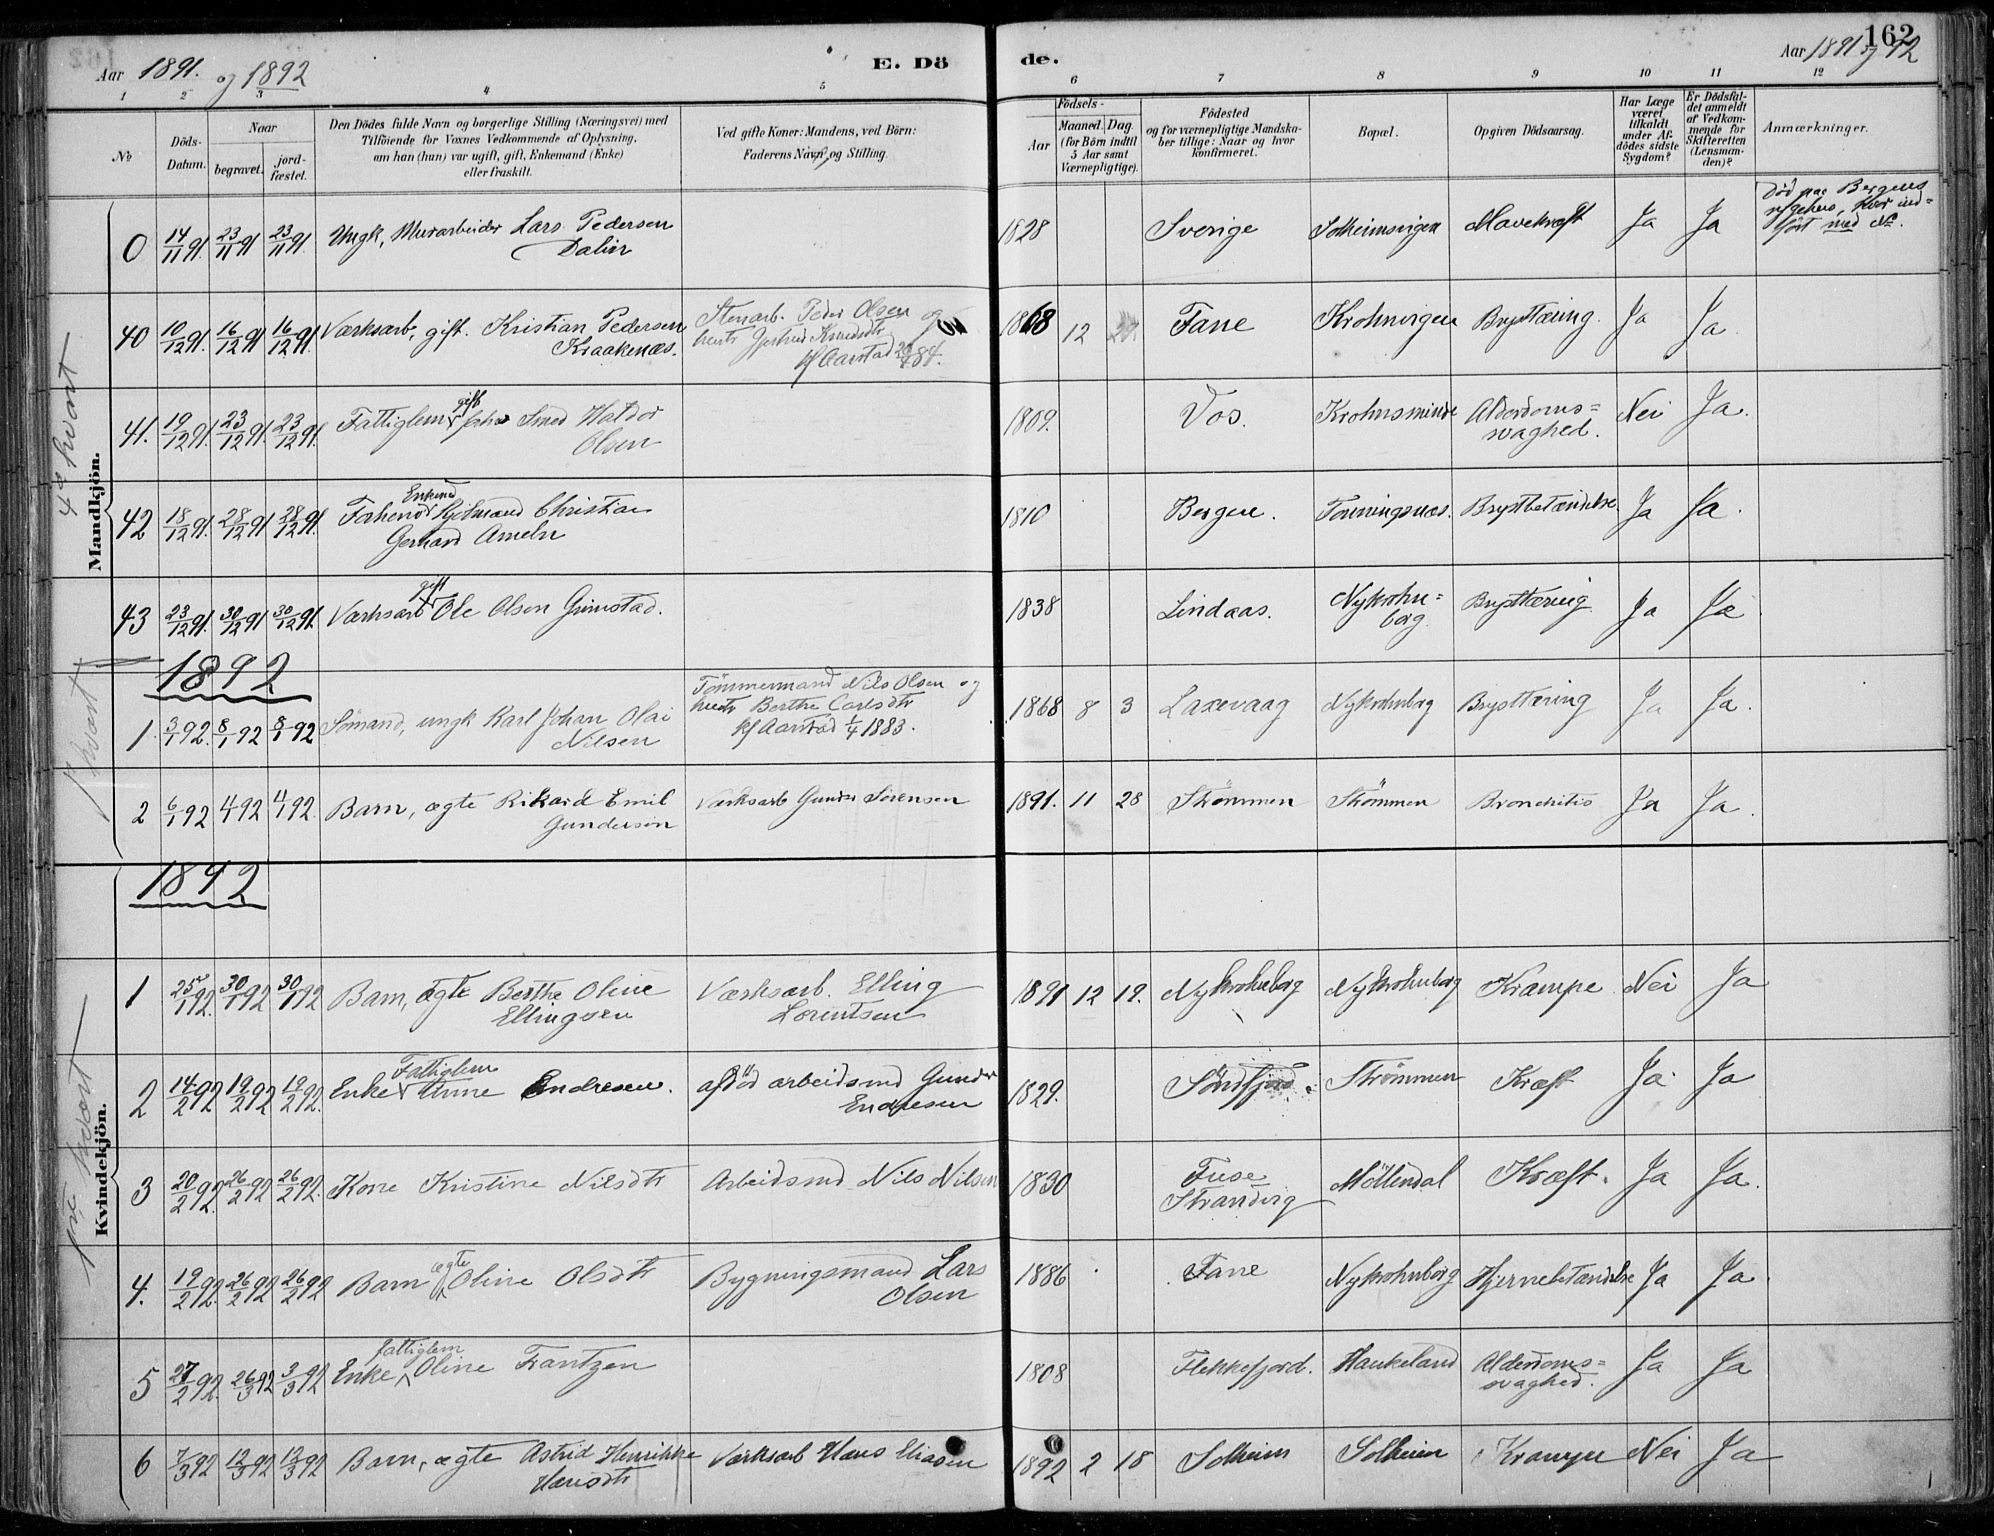 162
Aar 1891. og 1892
E. Dö
de.
Aar 1891 og 92
1 2 3 4 5 6 7 8 9 10 11 12
No
Döds-Datum.
Naar
begravet.
jord-fæstet.
Den Dödes fulde Navn og borgerlige Stilling (Næringsvei) med
Tilföiende for Voxnes Vedkommende af Oplysning,
om han (hun) var ugift, gift, Enkemand (Enke)
eller fraskilt.
Ved gifte Koner: Mandens, ved Börn:
Faderens Navn og Stilling.
Födsels-
Aar
Maaned. Dag.
(for Börn indtil
5 Aar samt
Værnepligtige).
Födested
og for værnepligtige Mandska-
ber tillige: Naar og hvor
konfirmeret.
Bopæl.
Opgiven Dödsaarsag.
Har Læge
været
tilkaldt
under Af-
dödes sidste
Sygdom?
Er Dödsfal-
det anmeldt
af Vedkom-
mende for
Skifteretten
(Lensman-
den)?
Anmærkninger.
4de kvart
Mandkjön.
0 14/11 91. 23/11 91 23/11 91. Ungk, Murarbeider Lars Pedersen
Dalin
1828 Sverige Solheimsvigen Mavekræft Ja Ja
Död paa Bergens
sygehus, hvor ind-
fört med No.
40 10/12 91. 16/12 91 16/12 91. Værksarb, gift. Kristian Pedersen
Kraakenæs.
Stenarb. Peder Olsen og
hustr Gjertrud Knudsdtr
kf Aarstad 84.
1868 12 Fane Krohnvigen Brysttæring. Ja Ja.
41. 19/12 91. 23/12 91. 23/12 91. Fattiglem gift forhv Smed Haldor
Olsen
1809. Vos. Krohnsminde Alderdoms=
svaghed. Nei Ja.
42 18/12 91. 28/12 91 28/12 91. Forhenv Enkemd Kjöbmand Christian
Gerhard Ameln
1810 Bergen. Forningsnæs. Brystbetændelse Ja Ja.
43 23/12 91. 30/12 91 30/12 91. Værksarb gift Ole Olson Grimstad.
1838 Lindaas. Nykrohn=
borg. Brysttæring Ja Ja
1 kvart
1892
1. 3/1 92. 8/1 92 8/1 92 Sömand, ungk Karl Johan Olai
Nilsen
Tömmermand Nils Olsen og
hustr Berthe Carlsdtr
kf Aarstad 1/4 1883.
1868 8 3 Laxevaag Nykrohnborg Brysttæring Ja Ja.
2 6/1 92 4 92 4/1 92. Barn, ægte Rikard Emil
Gundersen
Værksarb Gunder Sörensen
1891. 11 28 Strömmen Strömmen Bronchitis Ja Ja.
1892
1ste kvart
Kvindekjön.
1 25/1 92. 30/1 92 30/1 92 Barn, ægte Berthe Oline
Ellingsen
Værksarb. Elling
Lorentsen
1891 12 19. Nykrohnborg Nykrohnborg Krampe Nei Ja
2 14/2 92 19/2 92 19/2 92. Enke Fattiglem Anne Endresen.
afdöd arbeidsmd Gunder
Endresen
1829. Söndfjord. Strömmen Kræft Ja Ja
3 20/2 92. 26/2 92 26/2 92. Kone Kristine Nilsdtr
Arbeidsmd Nils Nilsen
1830 Fuse
Strandvig Möllendal Kræft. Ja Ja.
4. 19/2 92. 26/2 92 26/2 92 Barn ægte Oline Olsdtr
Bygningsmand Lars
Olsen
1886 Fane Nykrohnborg Hjernebetændelse Ja Ja.
5 27/2 92. 26/3 92 3/3 92 Enke fattiglem Oline Frantzen
1808 Flekkefjord. Haukeland Alderdoms=
svaghed. Ja Ja
6 7/3 92 12/3 92 12/3 92 Barn, ægte Astrid Henrikke
Hansdtr
Værksarb Hans Eliasen
1892 2 18 Solheim Solheim Krampe Nei Ja